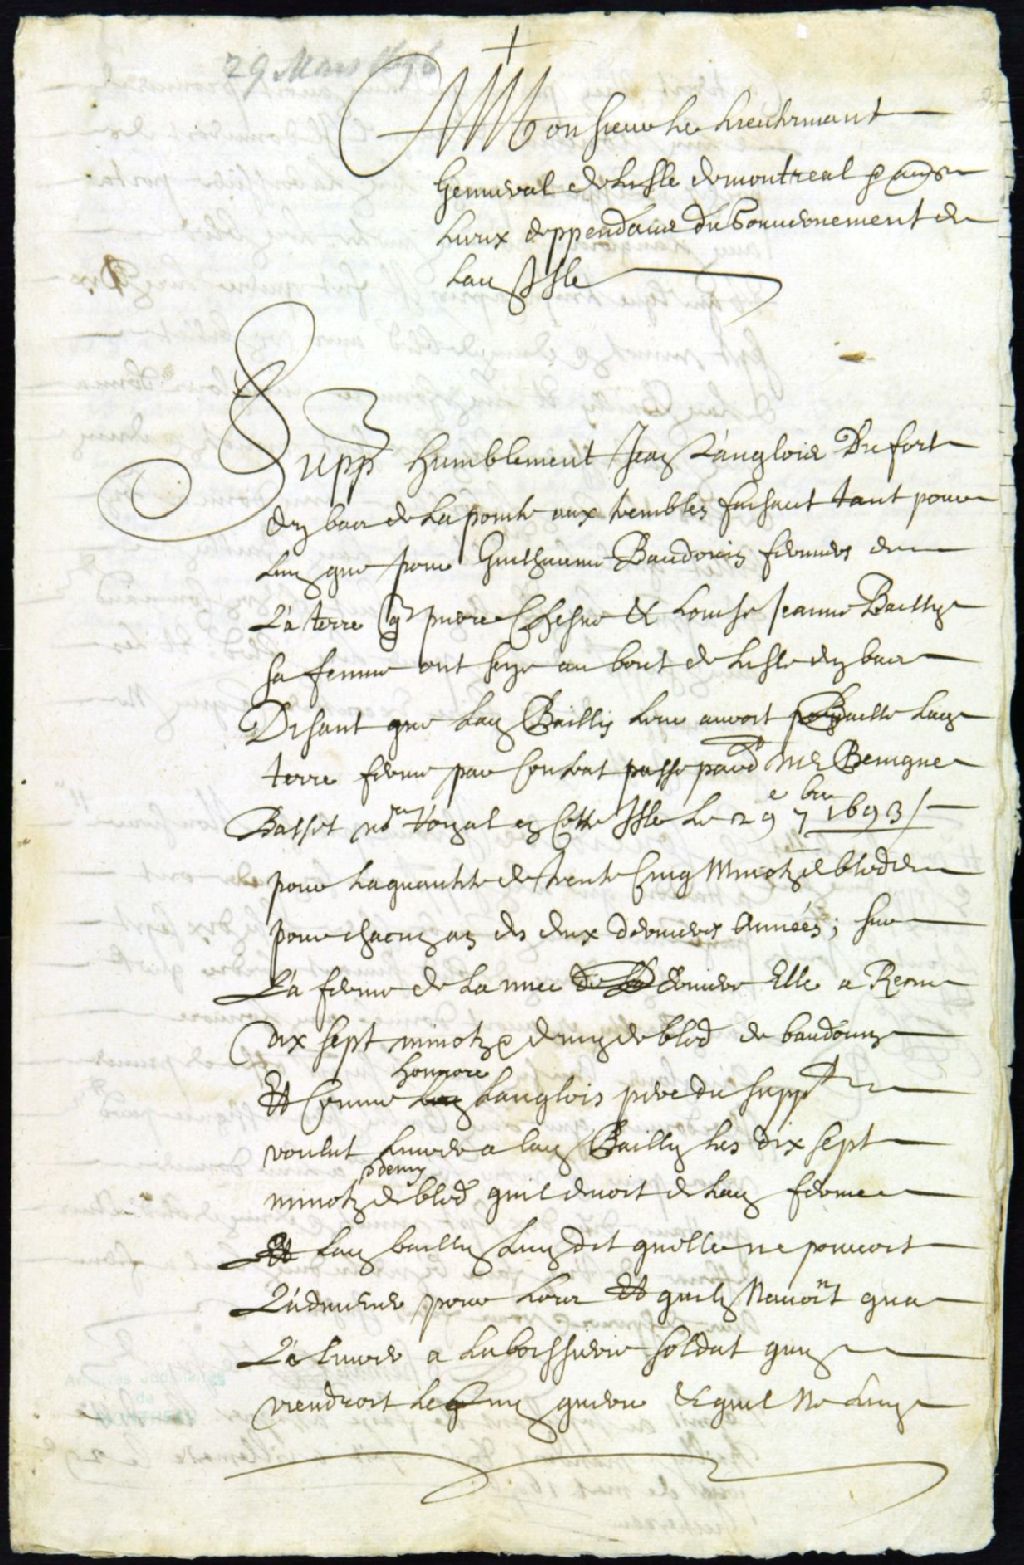 29 Mars 1696
Monsieur Le Lieutennant
Genneral de Lisle de montreal & autres
Lieux deppendance du Gouvernement de
Lad Isle
Supp humblement Jean Langlois Du fort
du bas de La pointe aux trembles faisant tant pour
Luy que pour Guillaume Baudouin fermiers de
La terre q pierre Chesne & Louise Jeanne Bailly
sa femme ont size au bout de Lisle du bas
Disant que Lad Bailly Leur auroit Baille Lad
terre ferme par Contrat passe pard Me Benigne
Basset no.re Royal en Cette Isle Le 29e 7bre 1693
pour La quantité de trente Cinq Minotz de bled
pour chacun an des deux dernieres Années, sur
La ferme de La nnee derniere Elle a Receu
dix sept minotz & demy de bled de baudouin
Et Comme honnore Langlois pere du supp
voulut Livrer a lad Bailly Les dix sept
minotz & demy de bled quil devoit de Lad ferme
Lad bailly Luy dit quelle ne pouvoit
pour Lors Et quil Navoit qua
Le Livrer a Laboissiere soldat quy
viendroit Le querir & quil Ne Luy